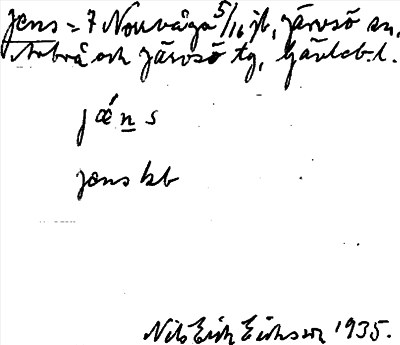 Jens = 7 Norrvåga 5/16 jb, Järvsö sn,
Arbrå och Järvsö tg, Gävleb. l.
jǽn̲s
jens kb
Nils Erik Eriksson 1935.